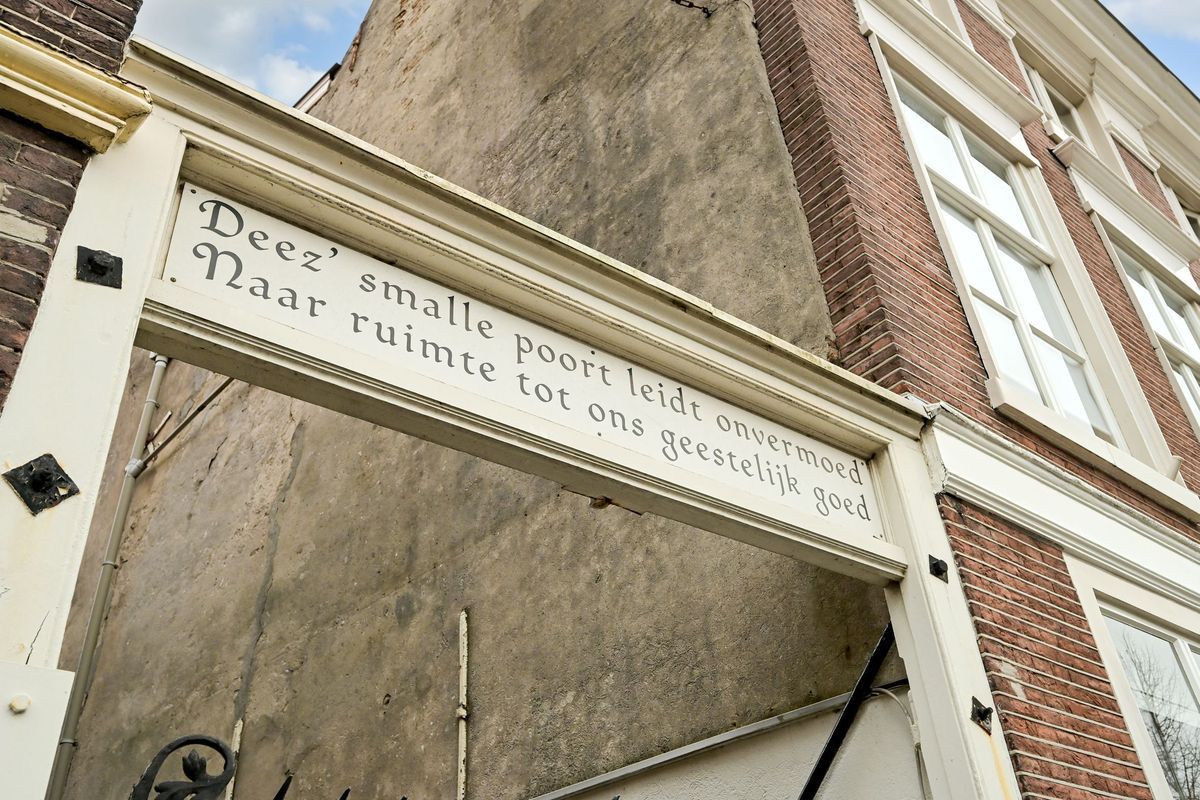 Deez' smalle poort leidt onvermoed
Naar ruimte tot ons geestelijk goed